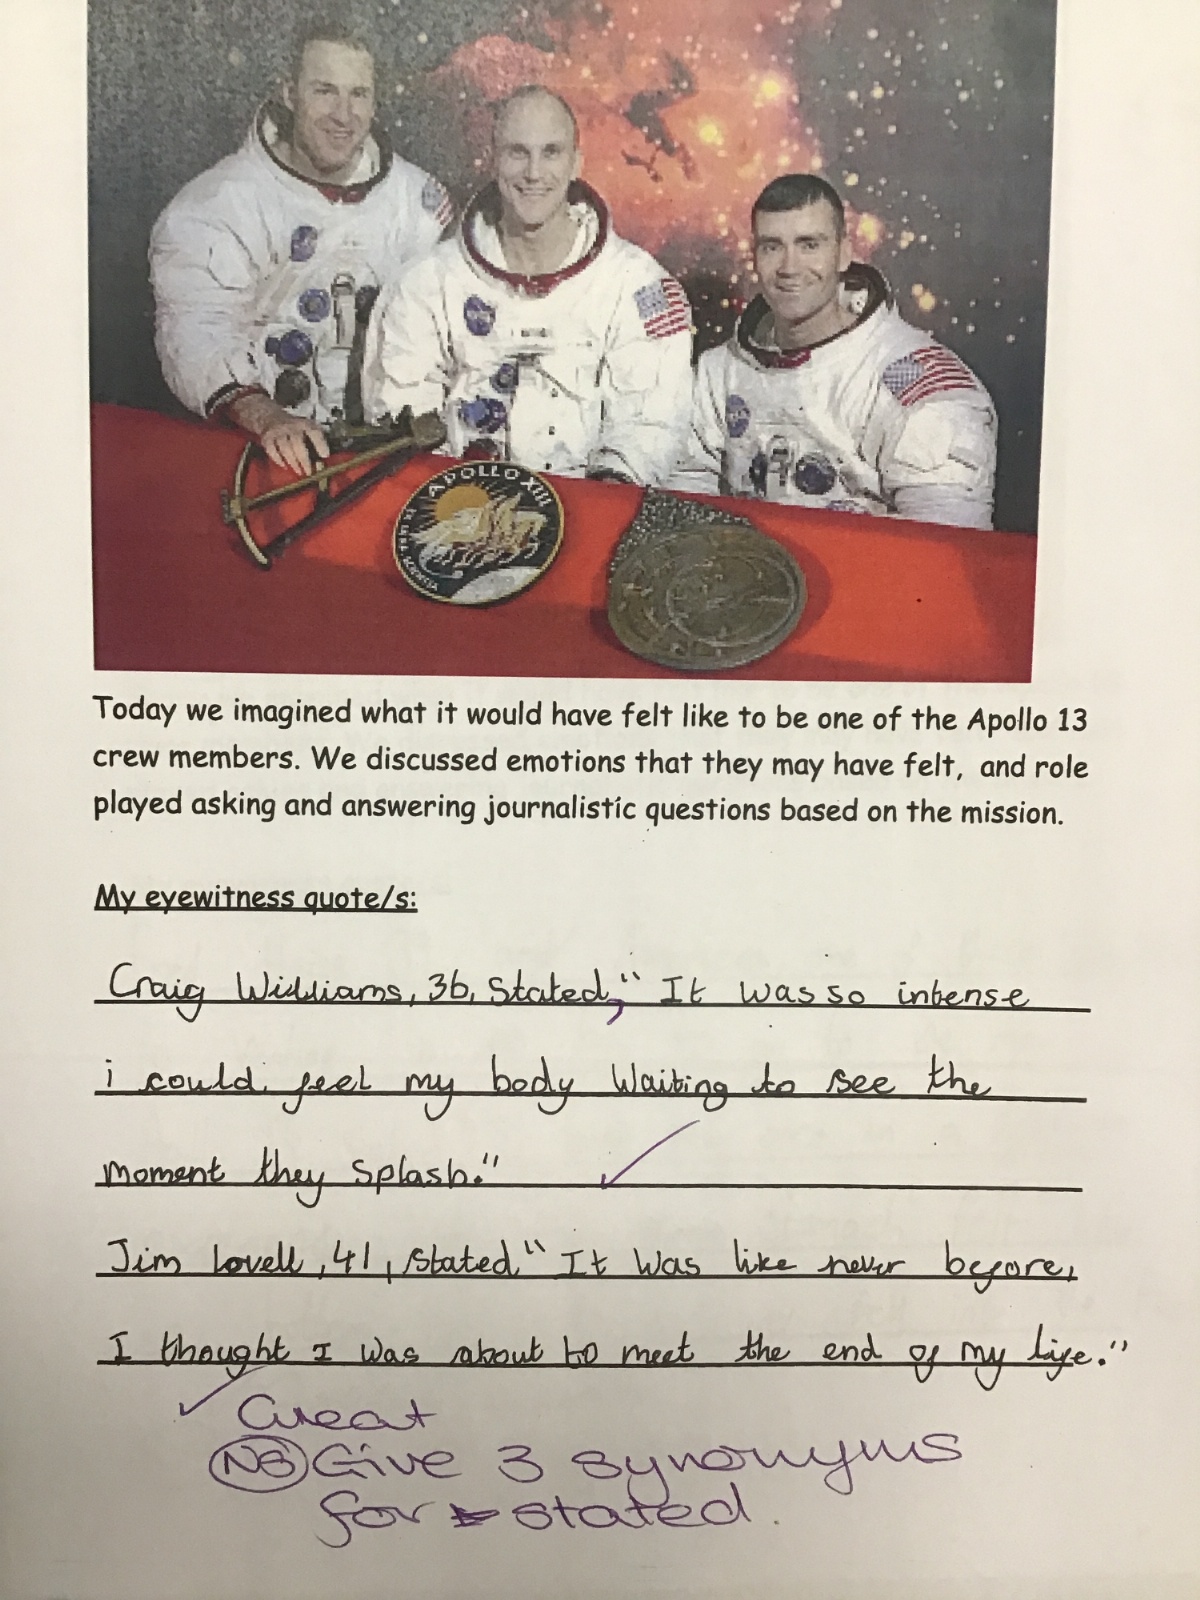 APOLLO XIII
EX LUNA, SCIENTIA
Today we imagined what it would have felt like to be one of the Apollo 13
crew members. We discussed emotions that they may have felt, and role
played asking and answering journalistic questions based on the mission.
My eyewitness quote/s:
Craig Williams, 36, Stated, "It was so intense
i could feel my body Waiting to see the
moment they splash."
Jim Lovell, 41, stated "It Was like never before,
I thought I was about to meet the end of my life."
Great
NS Give 3 synonyms
for stated.